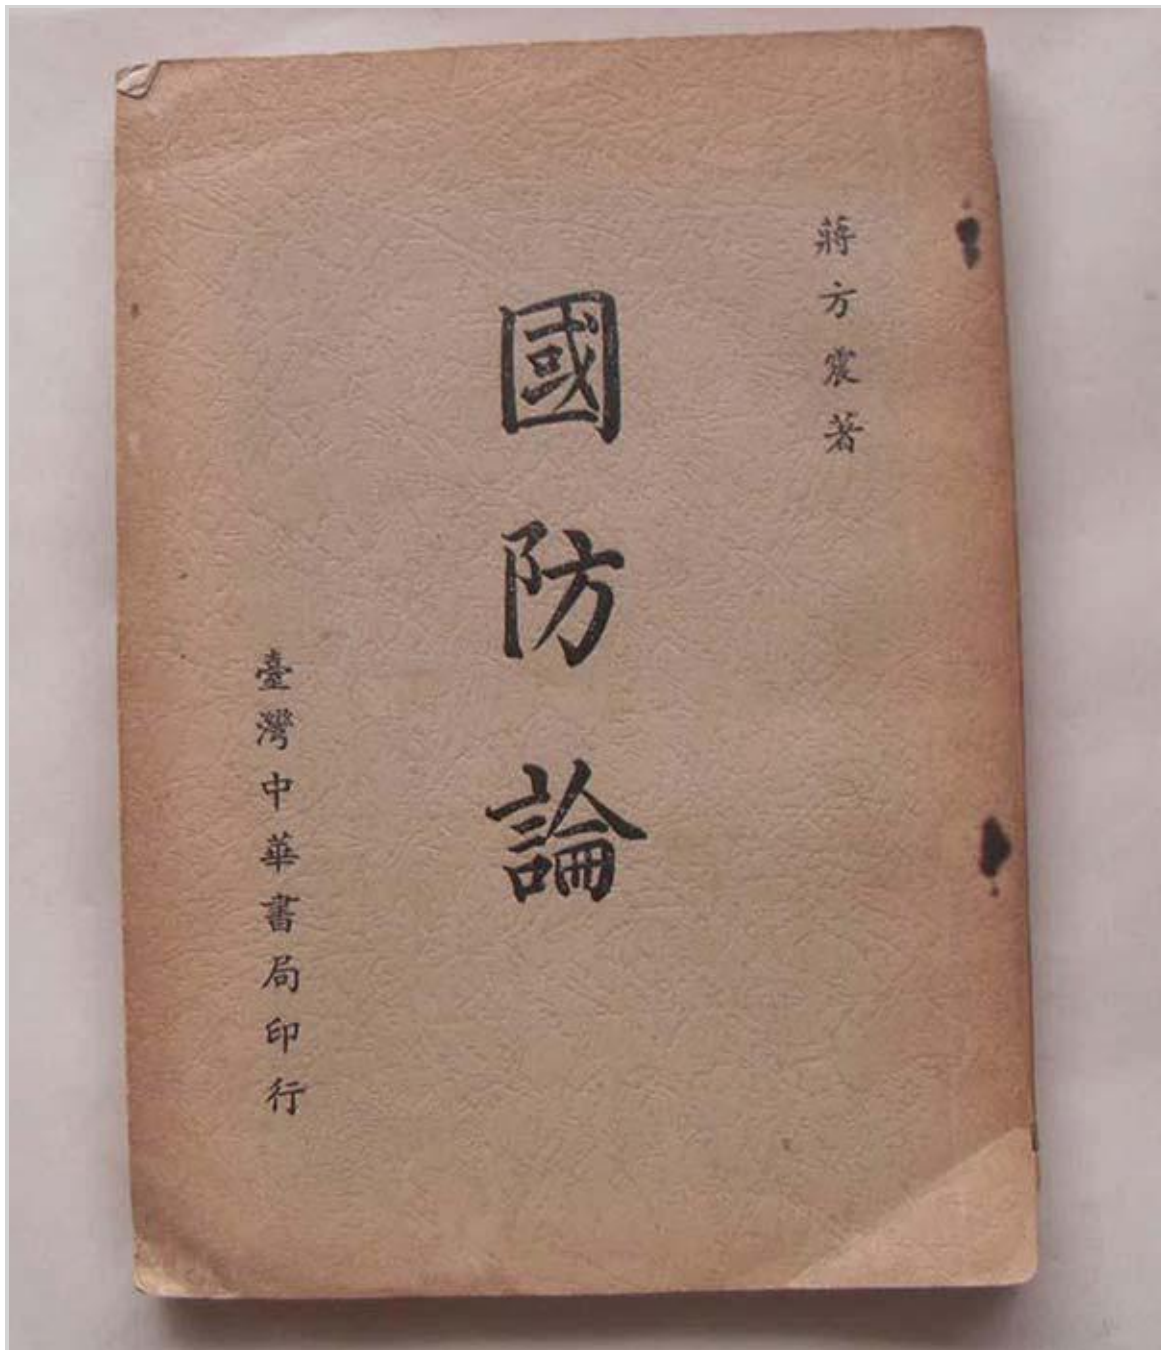 蔣方震著
國防論
臺灣中華書局印行